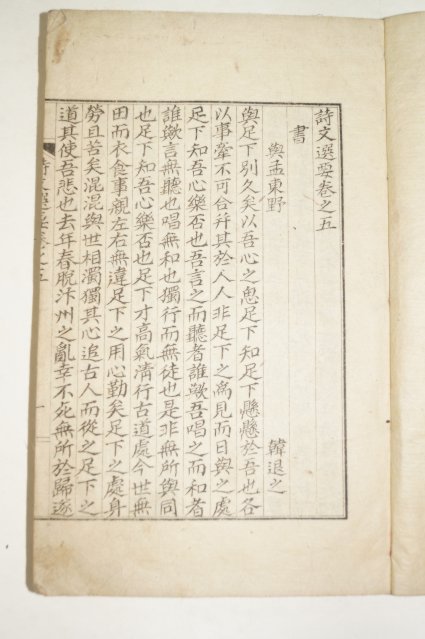 詩文選要卷之五
書
與孟東野 韓退之
與足下別久矣以吾心之思足下知足下懸懸於吾也各
以事牽不可合幷其於人人非足下之爲見而日與之處
足下知吾心樂否也吾言之而聽者誰歟吾唱之而和者
誰歟言無聽也唱無和也獨行而無徒也是非無所與同
也足下知吾心樂否也足下才高氣淸行古道處今世無
田而衣食事親左右無違足下之用心勤矣足下之處身
勞且苦矣混混與世相濁獨其心追古人而從之足下之
道其使吾悲也去年春脫汴州之亂幸不死無所於歸遂